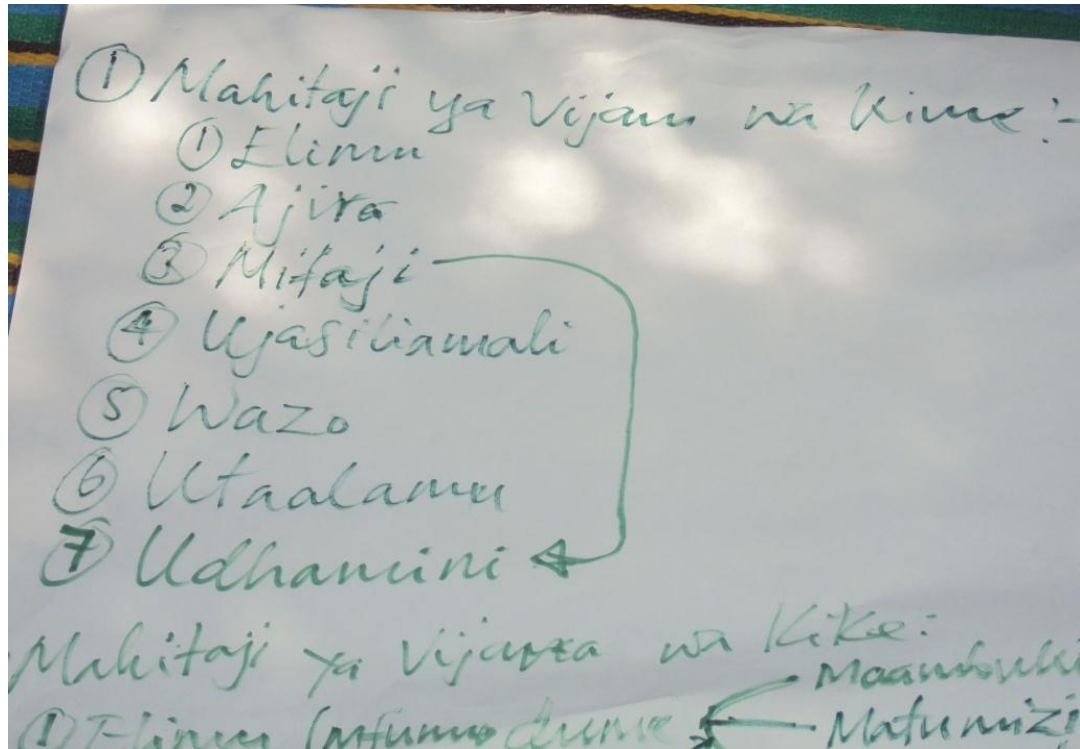 ① Mahitaji ya Vijana wa Kiume:-
① Elimu
② Ajira
③ Mitaji
④ Ujasiliamali
⑤ Wazo
⑥ Utaalamu
⑦ Udhamini
Mahitaji ya Vijana wa Kike:
Maambuki
① Elimu (mfumo dume
Matumizi